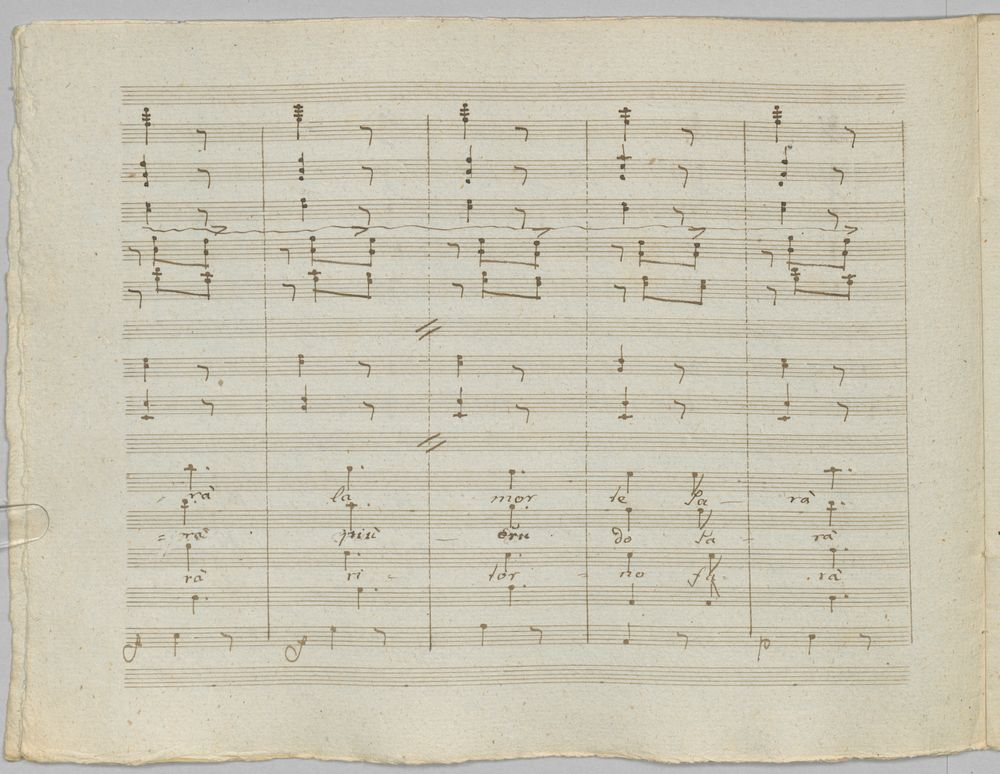 - rà la mor te sa - rà
= rà più - cru do sa - rà
rà ri - tor - no sa - rà
f f p